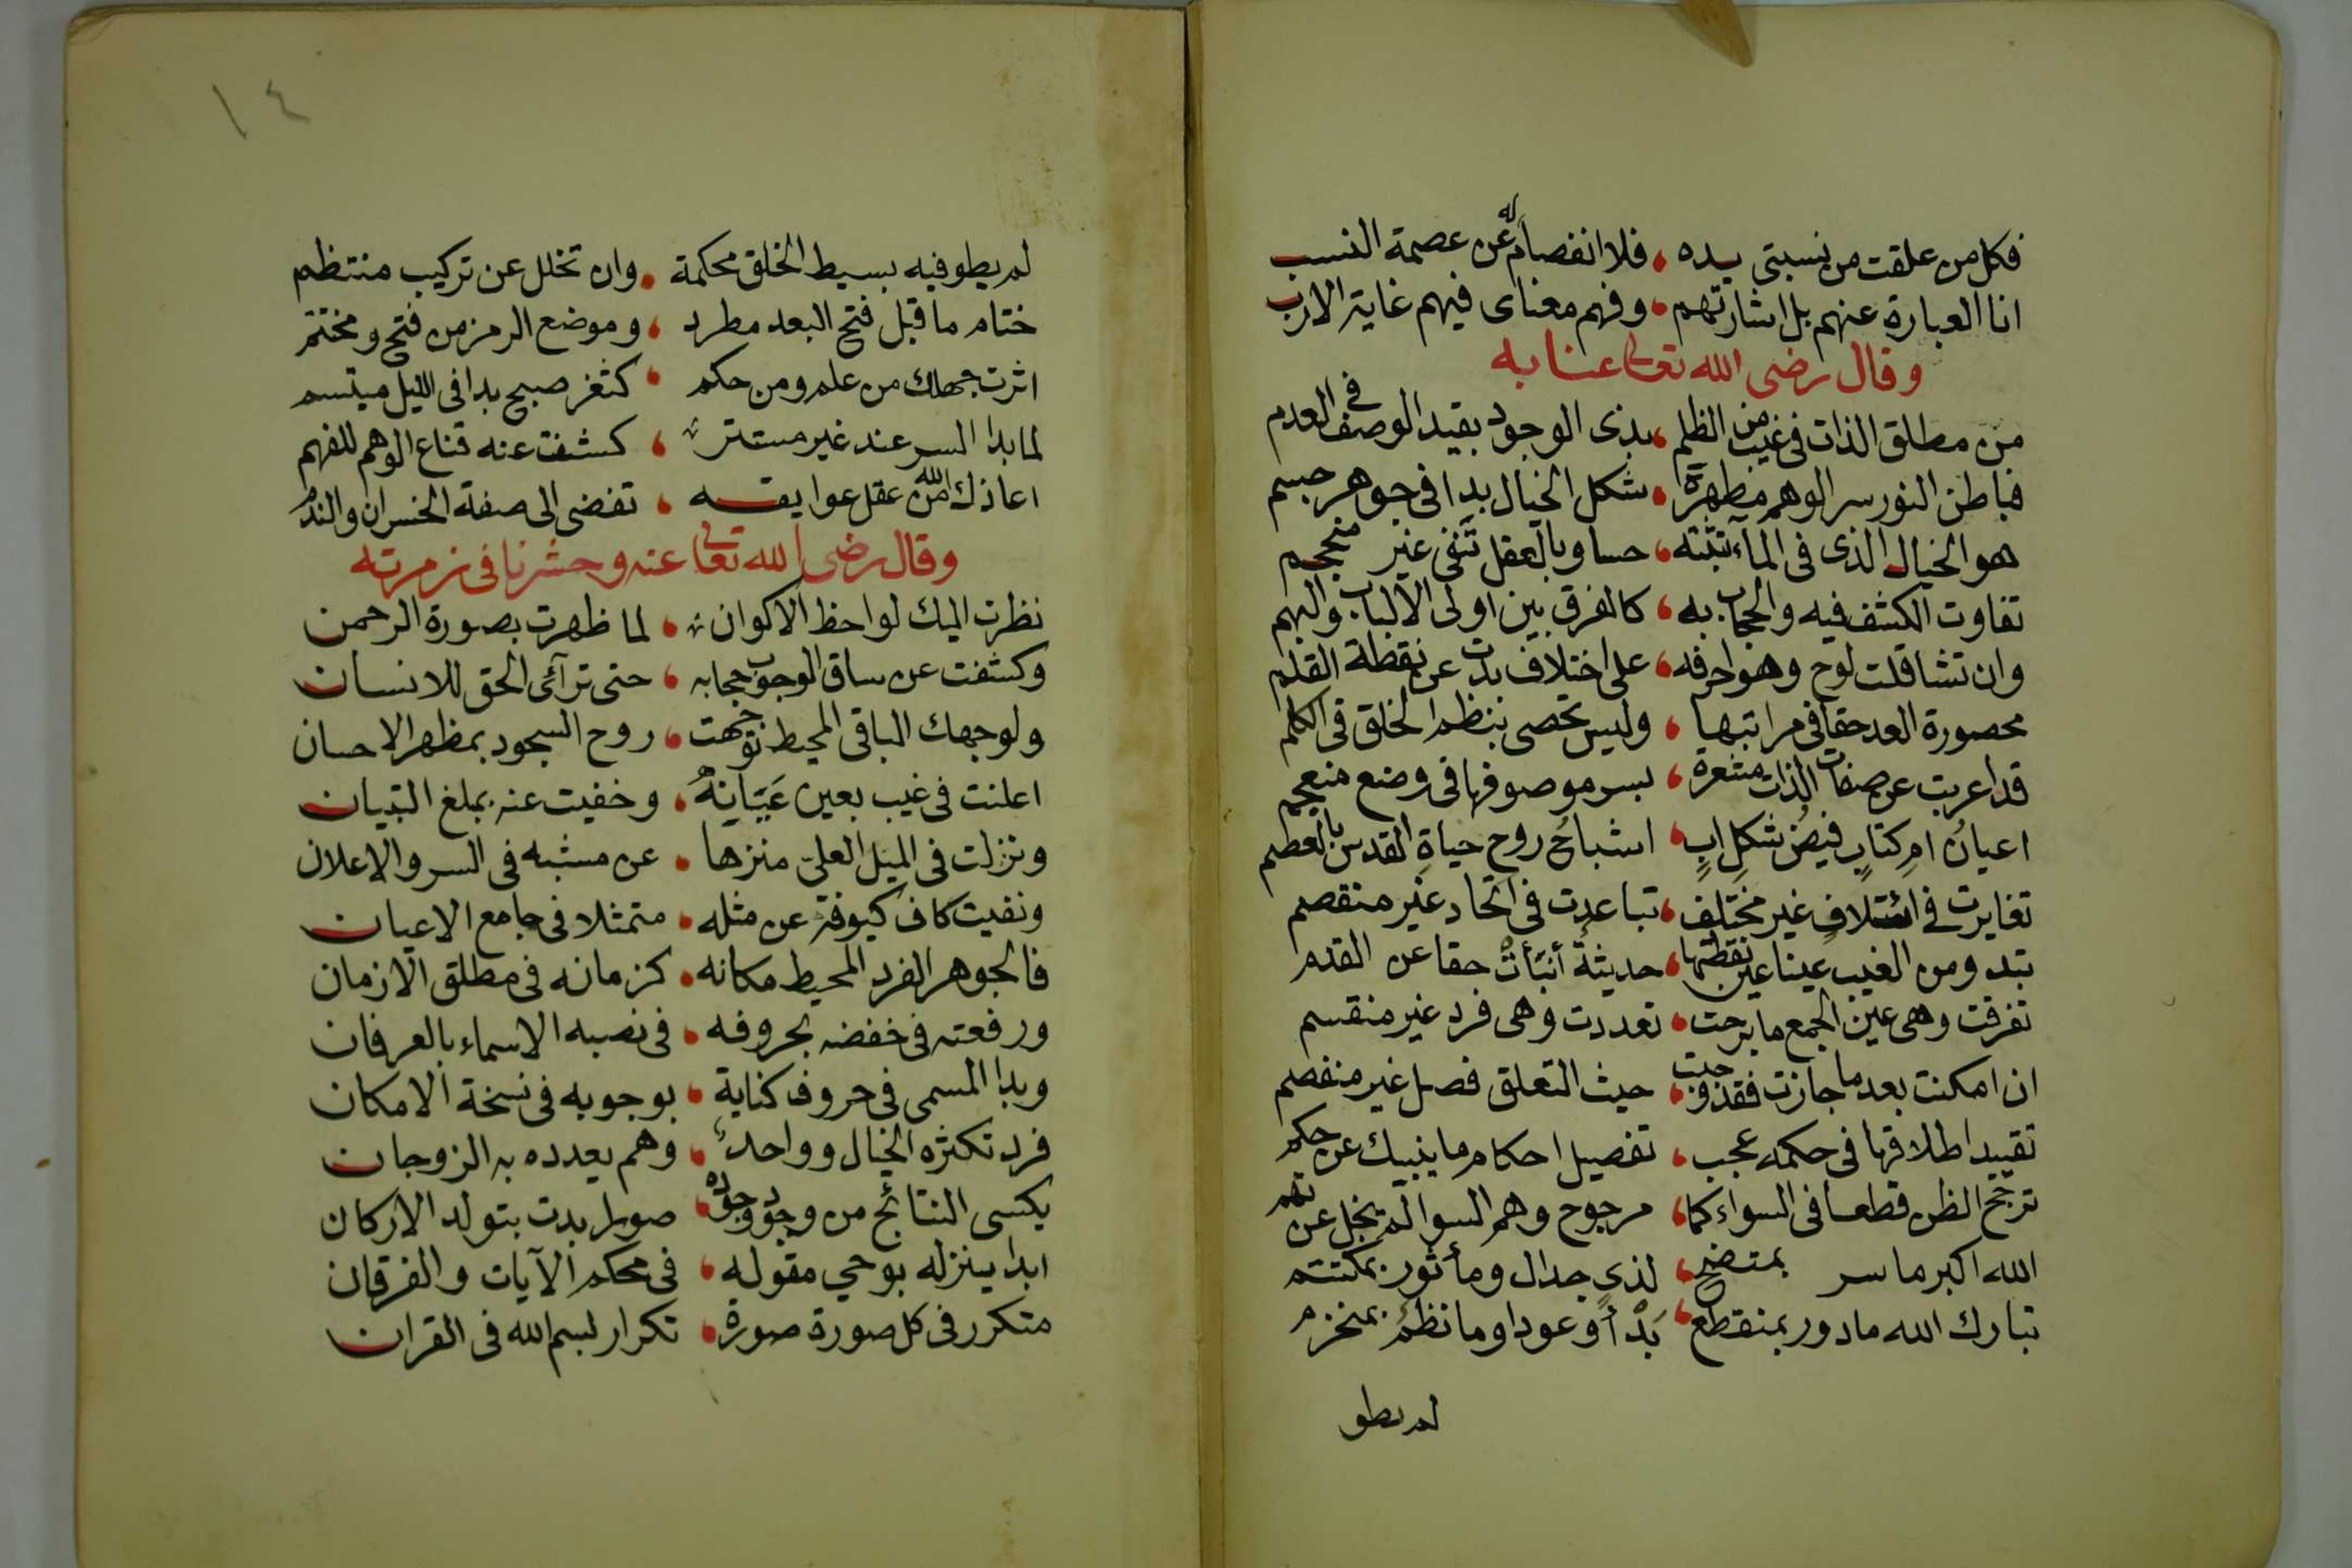 فكل من علقت من نسبتى يده ، فلا انفصام له عن عصمة النسب
انا العبارة عنهم بل اشارتهم ، وفهم معناى فيهم غاية الارب
وقال رضى الله تعالى عنا به
من مطلق الذات فى غيب من الظلم ، بذى الوجود بقيد الوصف فى العدم
فباطن النور سر الوهم مظهره ، شكل الخيال بدا فى جوهر جسم
هو الخيال الذى فى الماء تثبته ، حسا وبالعقل تنفى غير منحجم
تفاوت الكشف فيه والحجاب به ، كالفرق بين اولى الالباب والبهم
وان تشاقلت لوح وهو احرفه ، على اختلاف بدت عن نقطة القلم
محصورة العد حقا فى مراتبها ، وليس تحصى بنظم الخلق فى الكلم
قد اعربت عن صفات الذات مشعرة ، بسر موصوفها فى وضع منعجم
اعيان ام كتاب فيض شكل اب ، اشباح روح حياة القدس بالعظم
تغايرت فى ائتلاف غير مختلف ، تباعدت فى اتحاد غير منقصم
تبدو من الغيب عينا عين نقطتها ، حديثة أنبأت حقا عن القدم
تفرقت وهى عين الجمع ما برحت ، تعددت وهى فرد غير منقسم
ان امكنت بعد ما جازت فقد وجبت ، حيث التعلق فصل غير منفصم
تقييد اطلاقها فى حكمه عجب ، تفصيل احكام ما ينبيك عن حكم
ترجح الظن قطعا فى السواء كما ، مرجوح وهم السوا لم يخل عن تهم
الله اكبر ما سر بمتضح ، لذى جدال ومأثور بمكتتم
تبارك الله ما دور بمنقطع ، بدأ وعودا وما نظم بمنخرم
لم يطو
١٤
لم يطو فيه بسيط الخلق محكمة ، وان تخلل عن تركيب منتظم
ختام ما قبل فتح البعد مطرد ، وموضع الرمز من فتح ومختتم
اثرت جهلك من علم ومن حكم ، كثغر صبح بدا فى الليل مبتسم
لما بدا السر عند غير مستتر ، كشفت عنه قناع الوهم للفهم
اعاذك الله من عقل عوايقه ، تفضى الى صفقة الخسران والندم
وقال رضى الله تعالى عنه وحشرنا فى زمرته
نظرت اليك لواحظ الاكوان ، لما ظهرت بصورة الرحمن
وكشفت عن ساق الوجوب حجابه ، حتى ترآئى الحق للانسان
ولوجهك الباقى المحيط توجهت ، روح السجود بمظهر الاحسان
اعلنت فى غيب بعين عيانه ، وخفيت عنه بملغ التبيان
وتنزلت فى الميل العلى منزها ، عن مشبه فى السر والاعلان
ونفيت كاف كيوفة عن مثله ، متمثلا فى جامع الاعيان
فالجوهر الفرد المحيط مكانه ، كزمانه فى مطلق الازمان
ورفعته فى خفضه بحروفه ، فى نصبه الاسماء بالعرفان
وبدا المسمى فى حروف كناية ، بوجوبه فى نسخة الامكان
فرد تكثره الخيال وواحد ، وهم يعدده به الزوجان
يكسى النتائج من وجود وجوده ، صورا بدت بتولد الاركان
ابدا ينزله بوحي مقوله ، فى محكم الآيات والفرقان
متكرر فى كل صورة صورة ، تكرار لبسم الله فى القران